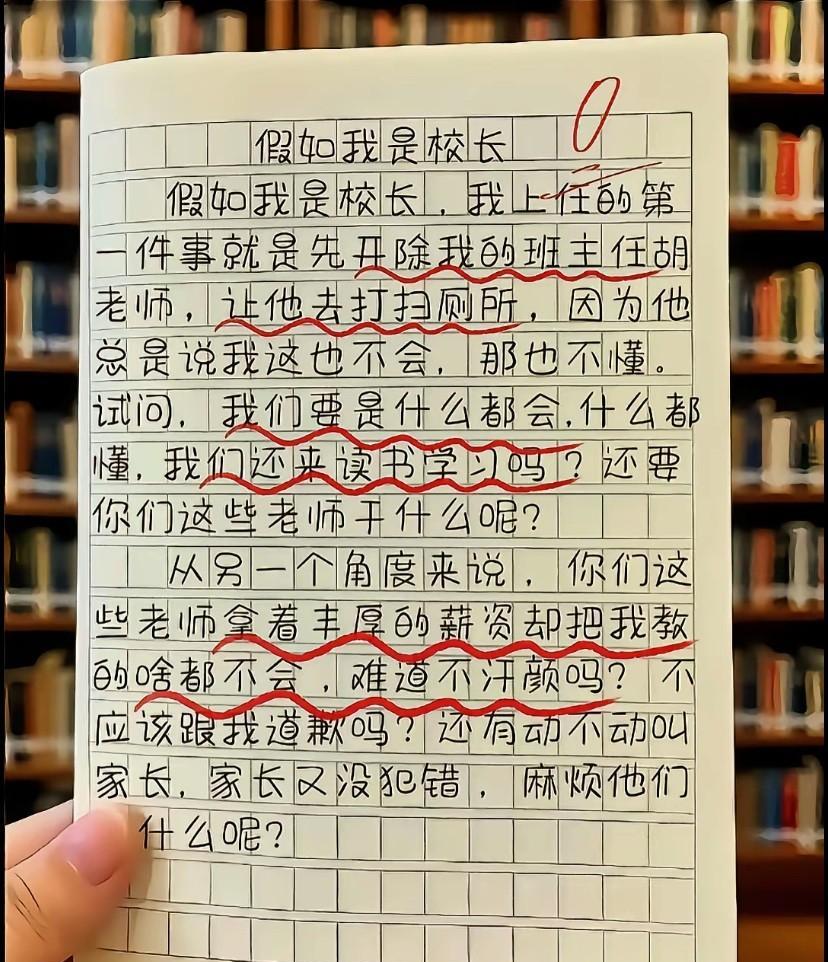 0
假如我是校长
假如我是校长，我上任的第
一件事就是先开除我的班主任胡
老师，让他去打扫厕所，因为他
总是说我这也不会，那也不懂。
试问，我们要是什么都会，什么都
懂，我们还来读书学习吗？还要
你们这些老师干什么呢？
从另一个角度来说，你们这
些老师拿着丰厚的薪资却把我教
的啥都不会，难道不汗颜吗？不
应该跟我道歉吗？还有动不动叫
家长，家长又没犯错，麻烦他们
什么呢？